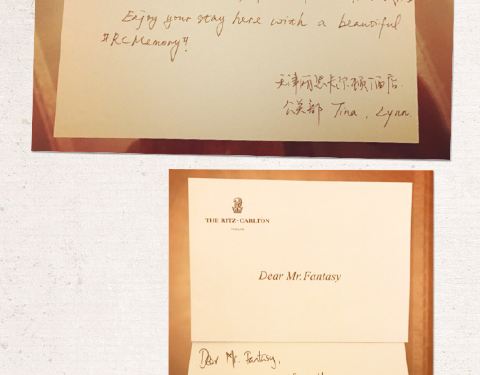 Enjoy your stay here with a beautiful
#RCMemory#
天津丽思卡尔顿酒店
公关部 Tina, Lynn.
THE RITZ-CARLTON
Dear Mr. Fantasy
Dear Mr. Fantasy,